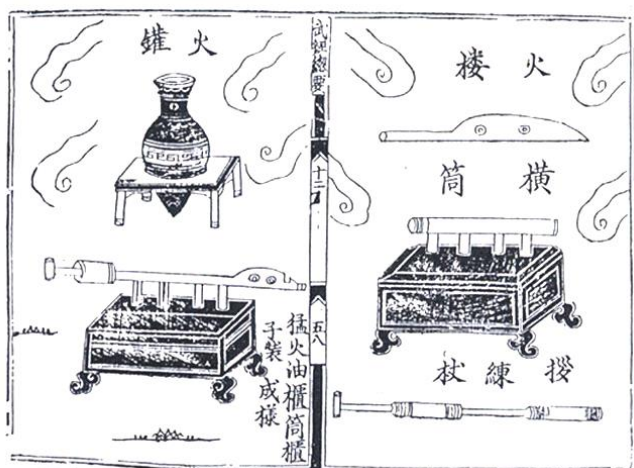 火楼
横筒
拶練杖
武經總要
十二
五八
火罐
猛火油櫃筒櫃
子裝成樣